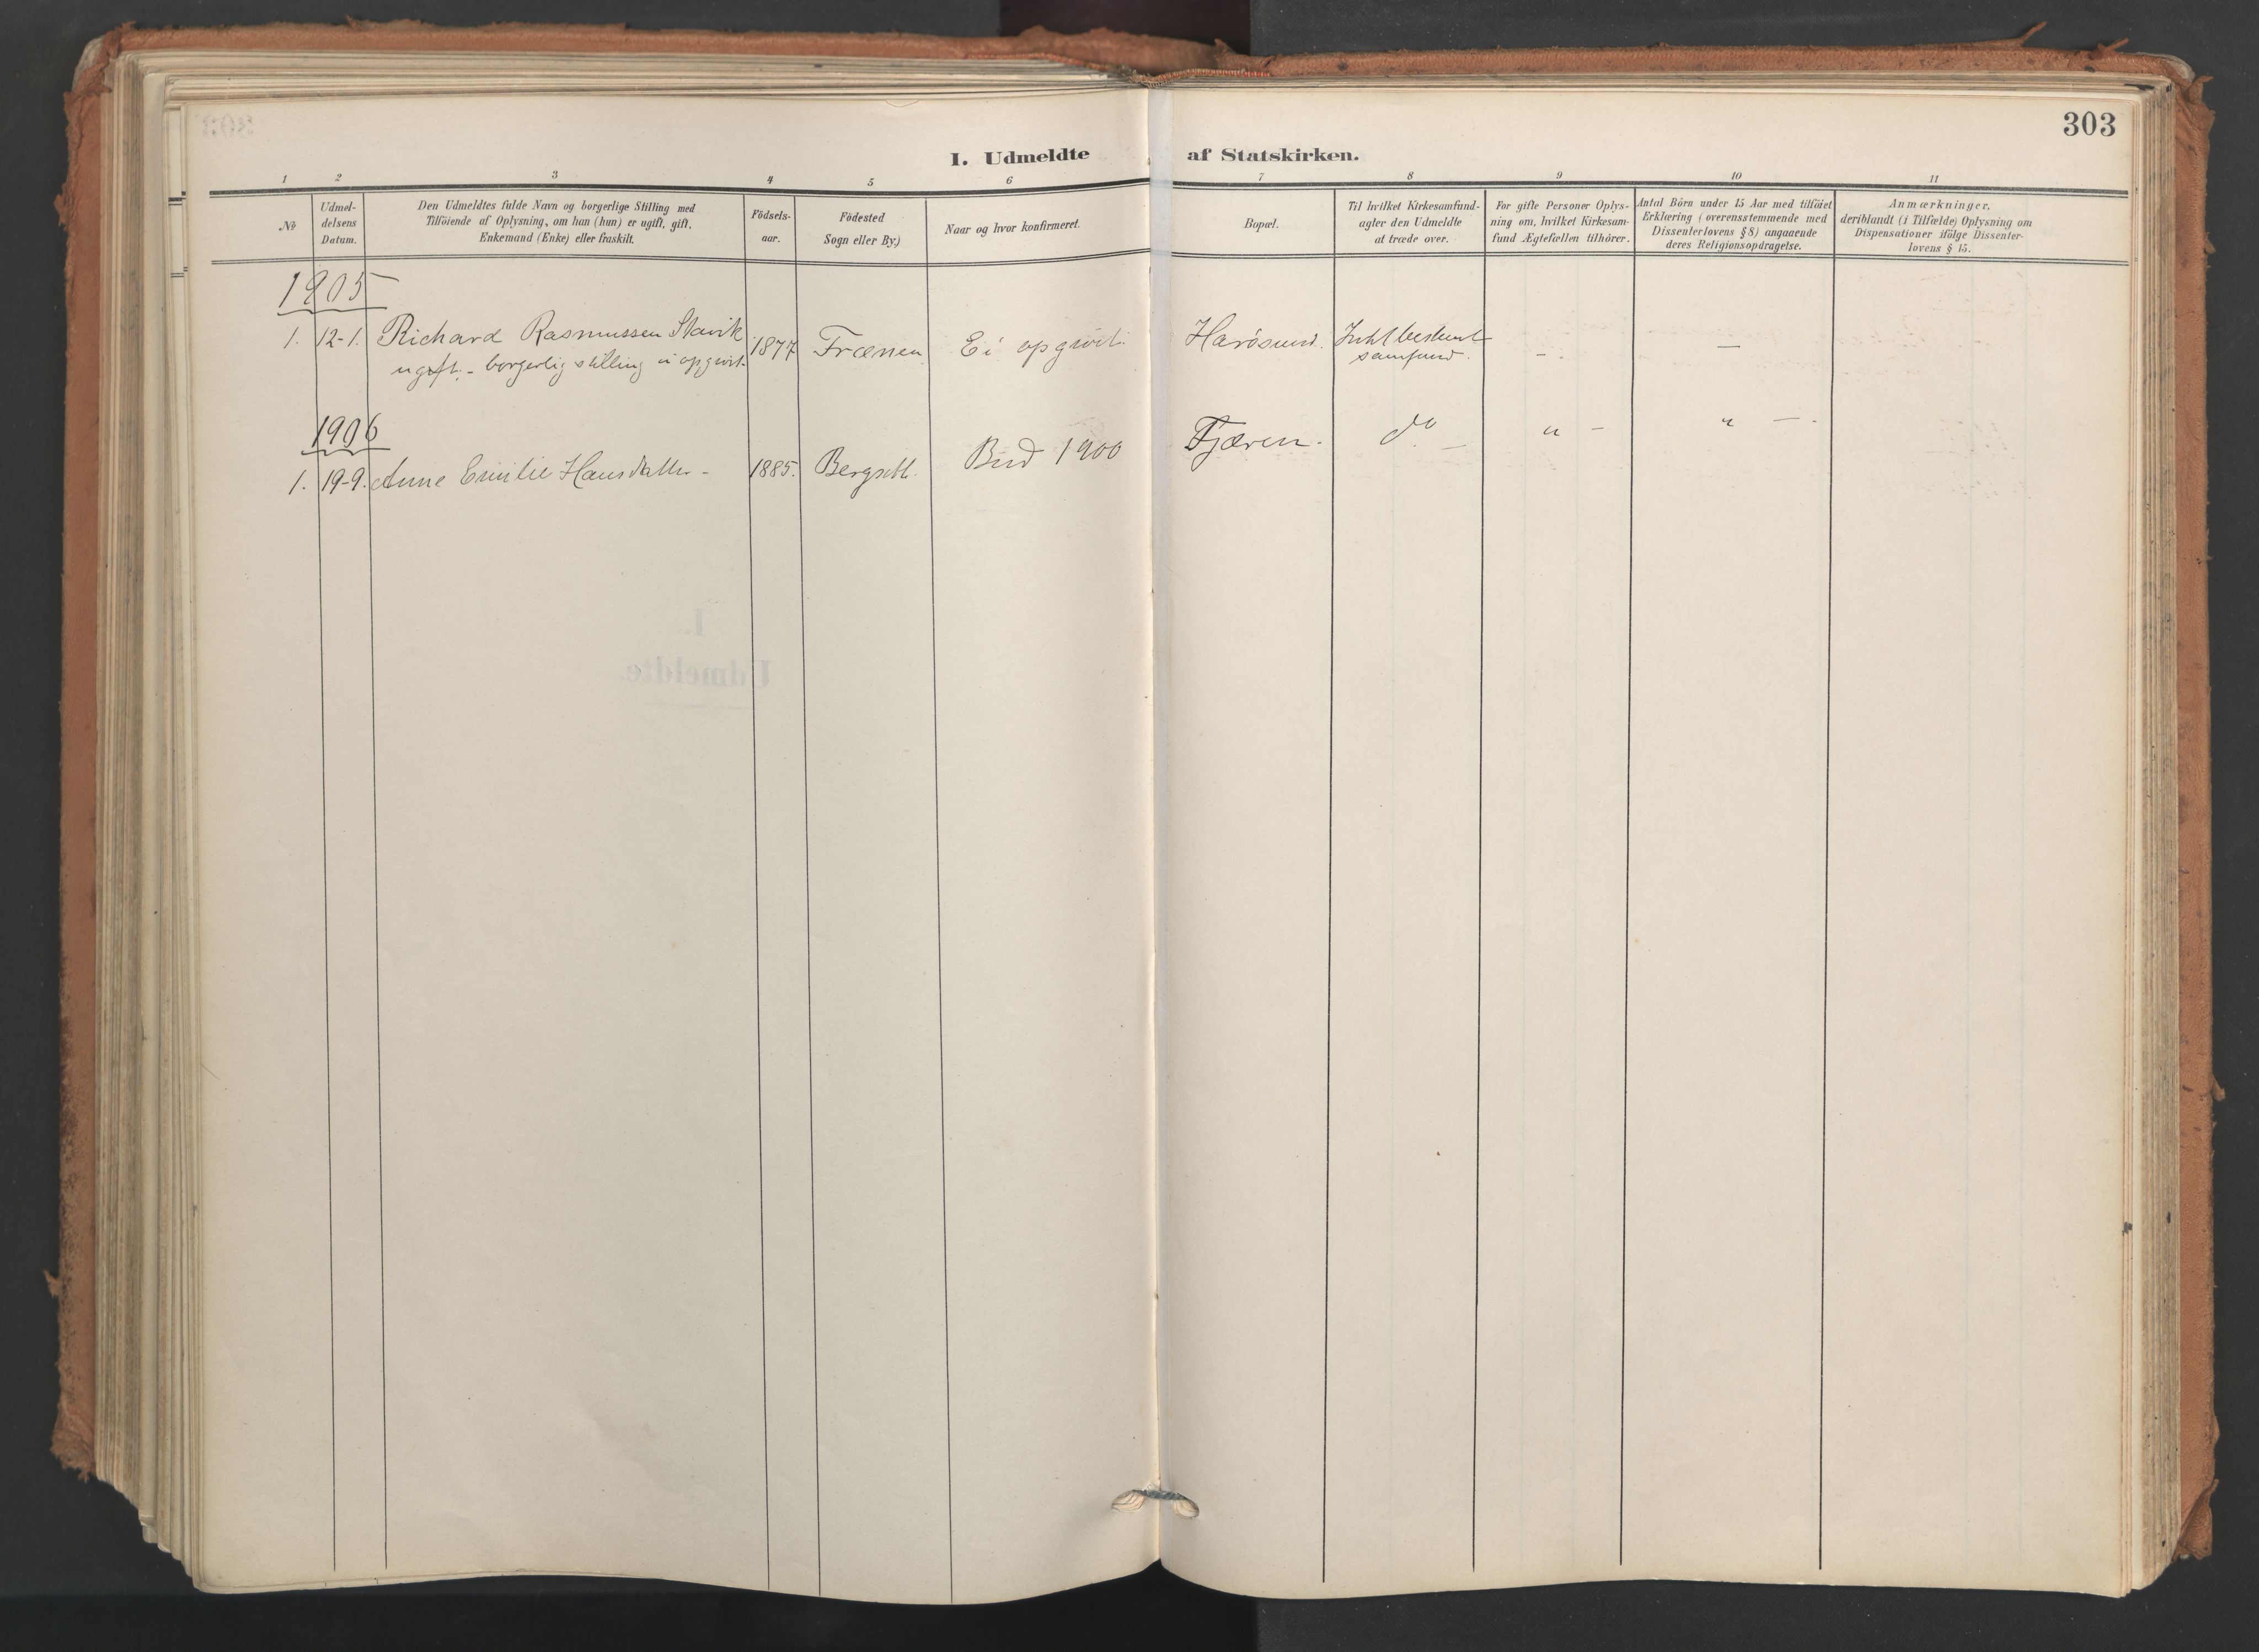 303
I. Udmeldte af Statskirken.
1 2 3 4 5 6 7 8 9 10 11
№
Udmel-
delsens
Datum.
Den Udmeldtes fulde Navn og borgerlige Stilling med
Tilföiende af Oplysning, om han (hun) er ugift, gift,
Enkemand (Enke) eller fraskilt.
Födsels-
aar.
Födested
Sogn eller By.)
Naar og hvor konfirmeret.
Bopæl.
Til hvilket Kirkesamfund-
agter den Udmeldte
at træde over.
For gifte Personer Oplys-
ning om, hvilket Kirkesam-
fund Ægtefællen tilhörer.
Antal Börn under 15 Aar med tilföiet
Erklæring (overensstemmende med
Dissenterlovens § 8) angaaende
deres Religionsopdragelse.
Anmærkninger,
deriblandt (i Tilfælde) Oplysning om
Dispensationer ifölge Dissenter-
lovens § 15.
1905
1. 12-1. Richard Rasmussen Stavik 1877 Frænen Ei opgivit. Harösund. bestemt
ugift. - borgerlig stilling ei opgivit. samfund. - -
1906
1. 19-9. Anne Emilie Hansdatter - 1885. Bergseth. Bud 1900 Tjæren. do - " - " -